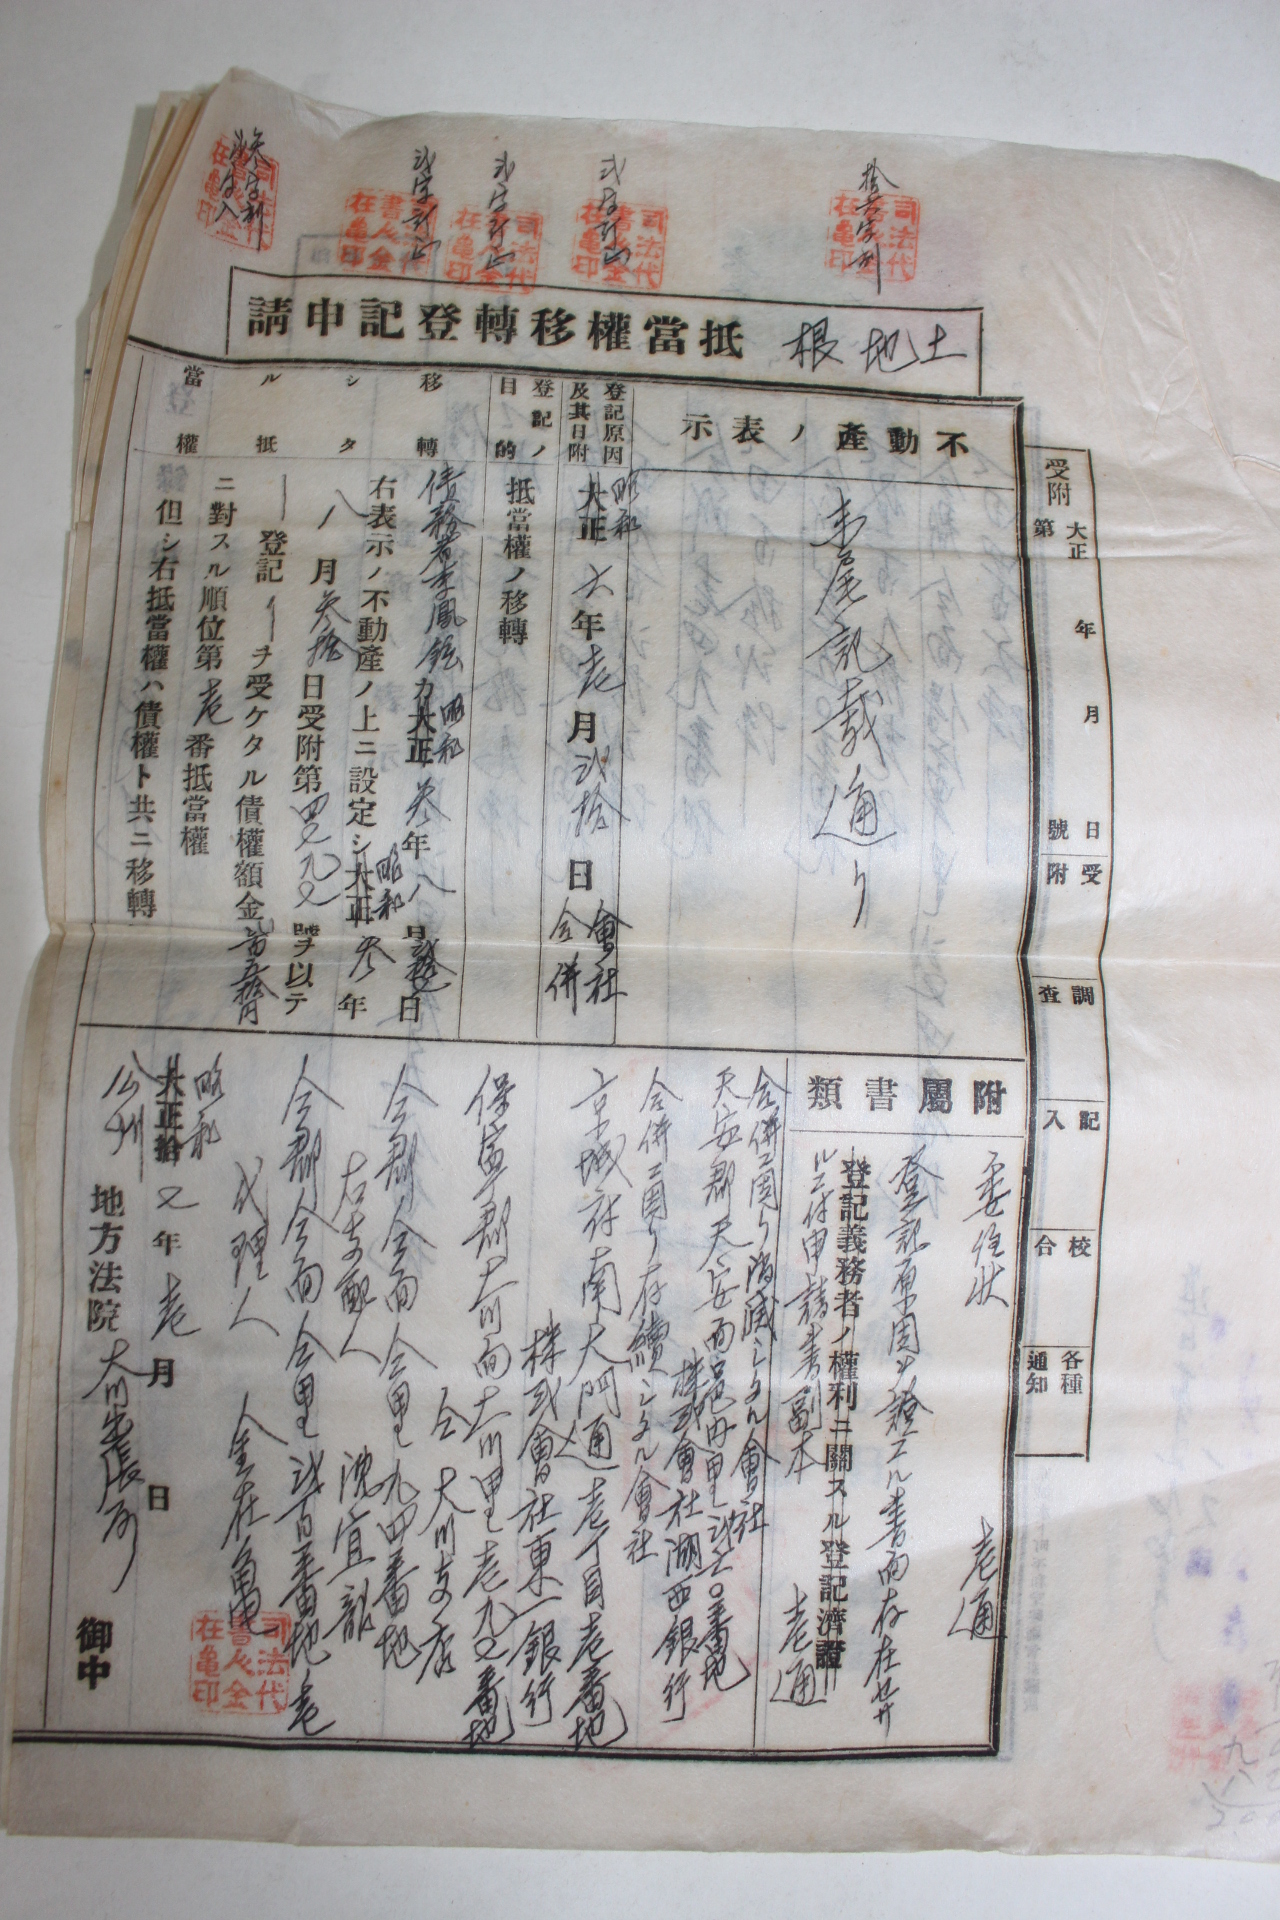 拾六字削
弐字訂正
弐字訂正
弐字訂正
司法代書人金在亀印
土地根抵當權移轉登記申請
受附
大正 年 月 日
第 號
受附
調查
記入
校合
各種通知
不動產ノ表示
末尾記載ノ通リ
登記原因及其日附
昭和
大正六年壱月弐拾日會社合併
登記ノ目的
抵當權ノ移轉
移轉シタル抵當權
債務者李鳳鉉カ大正昭和参年八月日
右表示ノ不動產ノ上ニ設定シ大正昭和参年
八月参拾日受附第四九又號ヲ以テ
登記ヲ受ケタル債權額金百五拾円
ニ對スル順位第壱番抵當權
但シ右抵當權ハ債權ト共ニ移轉
附屬書類
委任狀 壱通
登記原因ヲ證スル書面存在セサ
登記義務者ノ權利ニ關スル登記濟證
ルニ付申請書副本 壱通
合併ニ因リ消滅シタル會社
天安郡天安面邑內里弐六〇番地
株式會社湖西銀行
合併ニ因リ存續シタル會社
京城府南大門通壱丁目壱番地
株式會社東一銀行
保寧郡大川面大川里壱九又番地
仝 大川支店
仝郡仝面仝里九四番地
右支配人 沈宜
仝郡仝面仝里弐百番地壱
代理人 金在亀
司法代書人金在亀印
昭和
大正拾又年壱月 日
公州地方法院大川出張所 御中